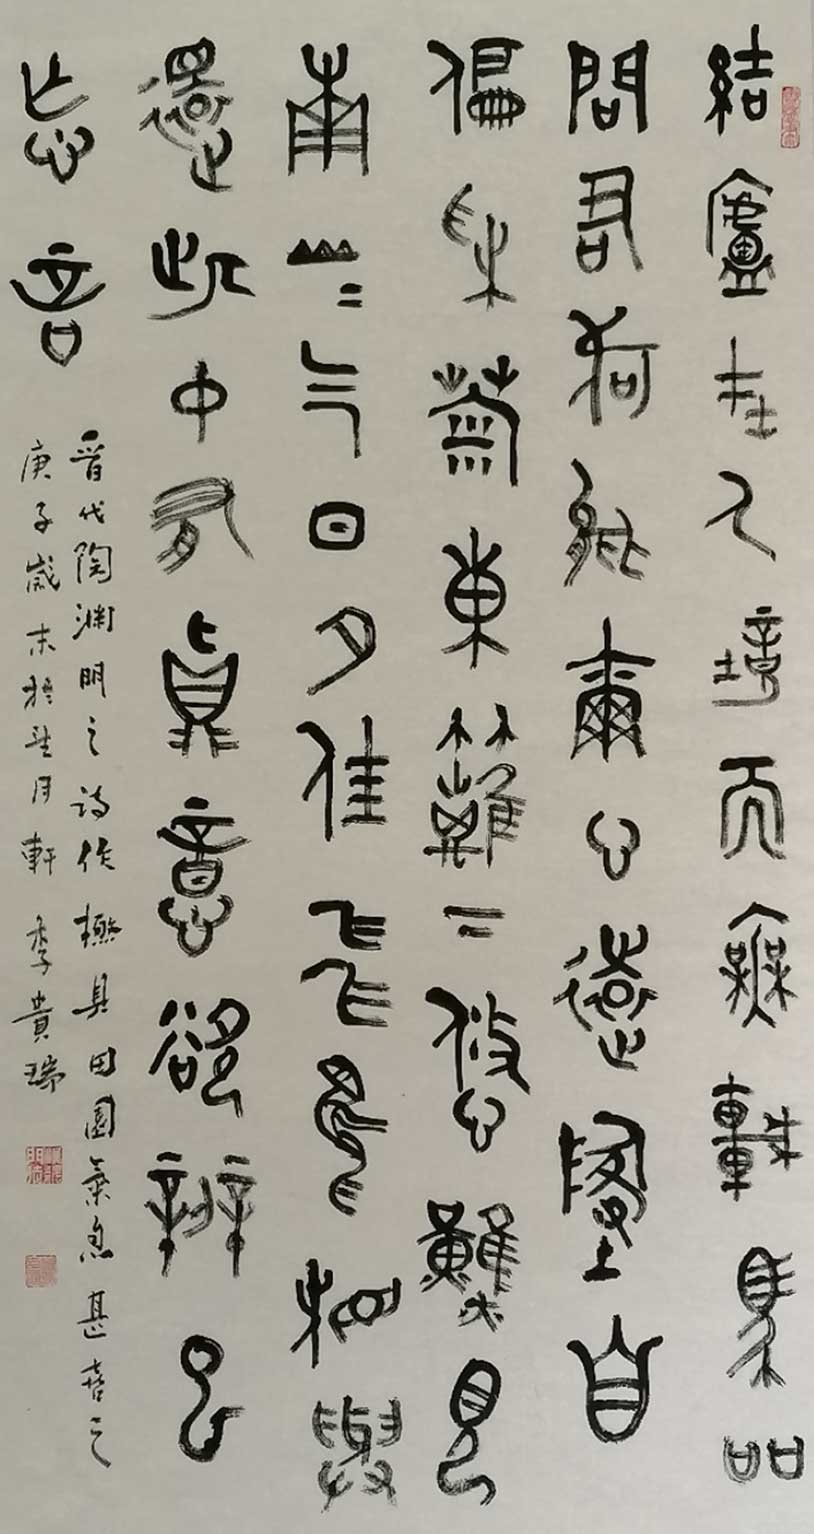 結廬在人境而無車馬吅
問君何能爾心遠地自
偏采菊東籬下悠然見
南山〻气日夕佳飛鳥相與
還此中有真意欲辨已
忘言
晉代陶淵明之詩作極具田園氣息甚喜之
庚子歲末於望月軒李貴瑞